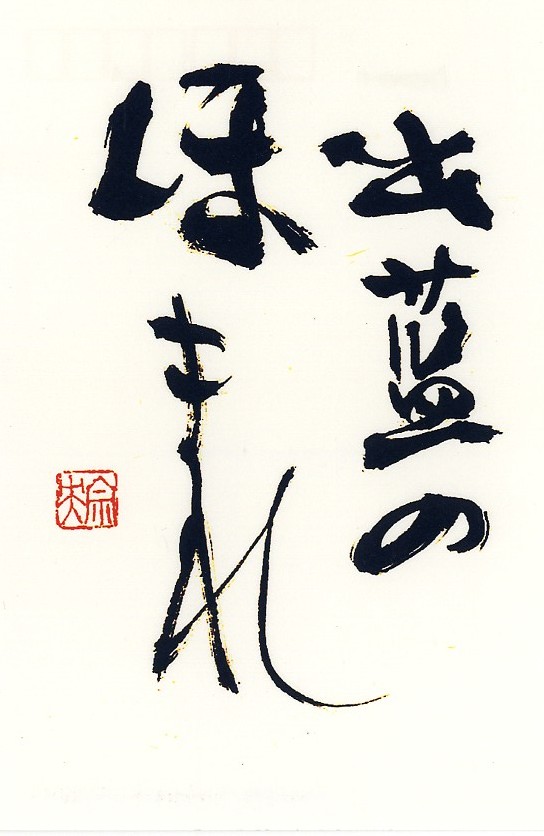 出藍の
ほまれ